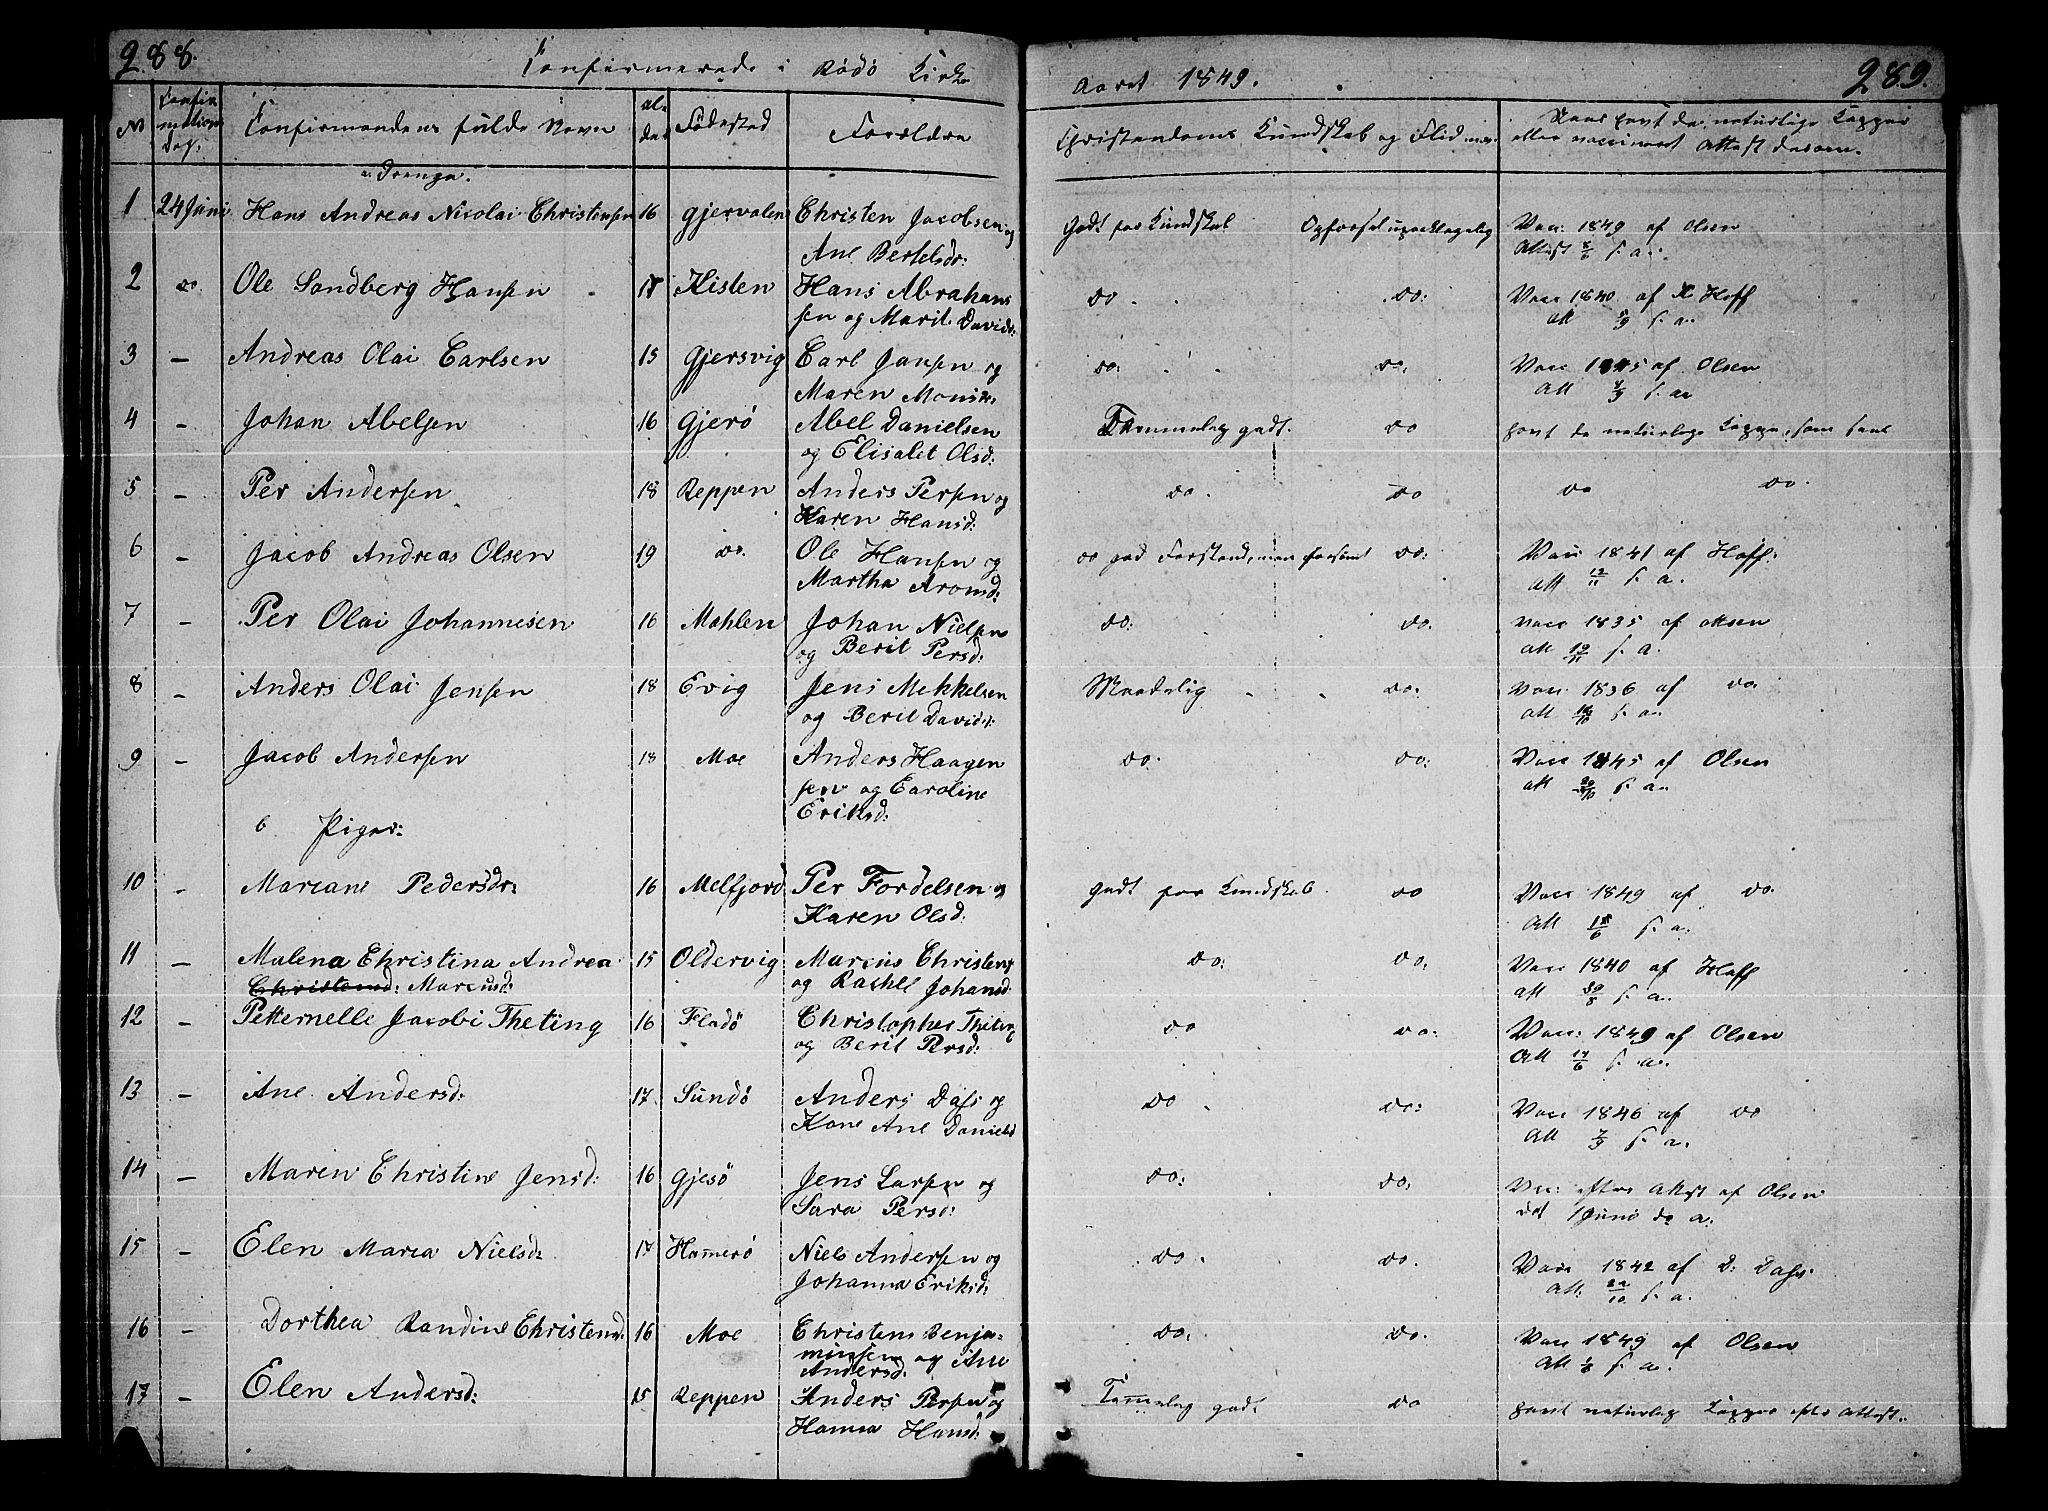 288.
Confirmerede i Rödö Kirke
Aaret 1849.
289.
No
Confirmations Dag.
Confirmandens fulde Navn
Alder
Födested
Forældre
Christendoms Kundskab og Flid
Naar havt de naturlige Kopper
eller vaccineret Attest derom.
a Drenge.
1 24 Juni Hans Andreas Nicolai Christensen 16 Gjervalen Christen Jacobsen og Godt for Kundskab Opførsel upaaklagelig Vac: 1849 af Olsen
Ane Bertelsdr: Attest 8/6 s. a.
2 do Ole Sandberg Hansen 18 Kisten Hans Abrahams do do: Vacc 1840 af Hoff
sen og Marit Davids: Att s. a.
3 — Andreas Olai Carlsen 15 Gjersvig Carl Jansen og do: do: Vacc 1845 af Olsen
Maren Monsdr: Att 4/9 s. a
4 — Johan Abelsen 16 Gjerö Abel Danielsen Temmelig godt. do havt de naturlige Kopper, som
og Elisabet Olsd:
5 — Per Andersen 18 Reppen Anders Persen og do. do do do.
Karen Hansd:
6 — Jacob Andreas Olsen 19 do. Ole Hansen og do god Forstand, men forsömt do: Vacc 1841 af Hoff:
Martha Aronsd: Att 12/11 s. a.
7 — Per Olai Johannesen 16 Mahlen Johan Nielsen do: do. Vacc 1835 af Olsen
og Berit Persd: Att 10/11 s. a.
8 — Anders Olai Jensen 18 Evig Jens Mekkelsen Maadelig do: Vacc: 1836 af do.
og Berit Davids: Att s. a.
9 — Jacob Andersen 18 Moe Anders Haagen do. do: Vacc 1845 af Olsen
sen og Caroline Att s. a.
Eriksd:
b Piger:
10 — Mariane Pedersdr: 16 Melfjord Per Fordelsen og godt for Kundskab do Vacc 1849 af do.
Karen Olsd: Att 15/6 s. a.
11 — Malena Christina Andrea 15 Oldervig Marcus Christens do: do. Vacc 1840 af Hoff
Christensd: Marcusd: og Rachel Johansd: Att 30/8 s. a.
12 — Petternelle Jacobi Theting 16 Fladö Christopher Theting do do: Vacc: 1849 af Olsen
og Berit Persd: Att 17/6 s. a.
13 — Ane Andersd: 17 Sundö Anders Dass og do do: Vacc 1846 af do
Kone Ane Danielsd Att 7/9 s. a.
14 — Maren Christine Jensd: 16 Gjesö Jens Larsen og do: do. Vac: efter Attest af Olsen
Sara Persd: dat 1 Juni s. a.
15 — Elen Maria Nielsd: 17 Hamerö Niels Andersen og do. do. Vacc 1842 af D: Dass:
Johanna Eriksd: Att: 22/10 s. a.
16 — Dorthea Randine Christensd. 16 Moe Christens Benja- do. do. Vacc 1849 af Olsen
minsen og Ane Att 1/6 s. a.
Andersd.
17 — Elen Andersd: 15 Reppen Anders Persen og Temmelig godt do havt naturlig Kopper efter Attest.
Hanna Hansd: